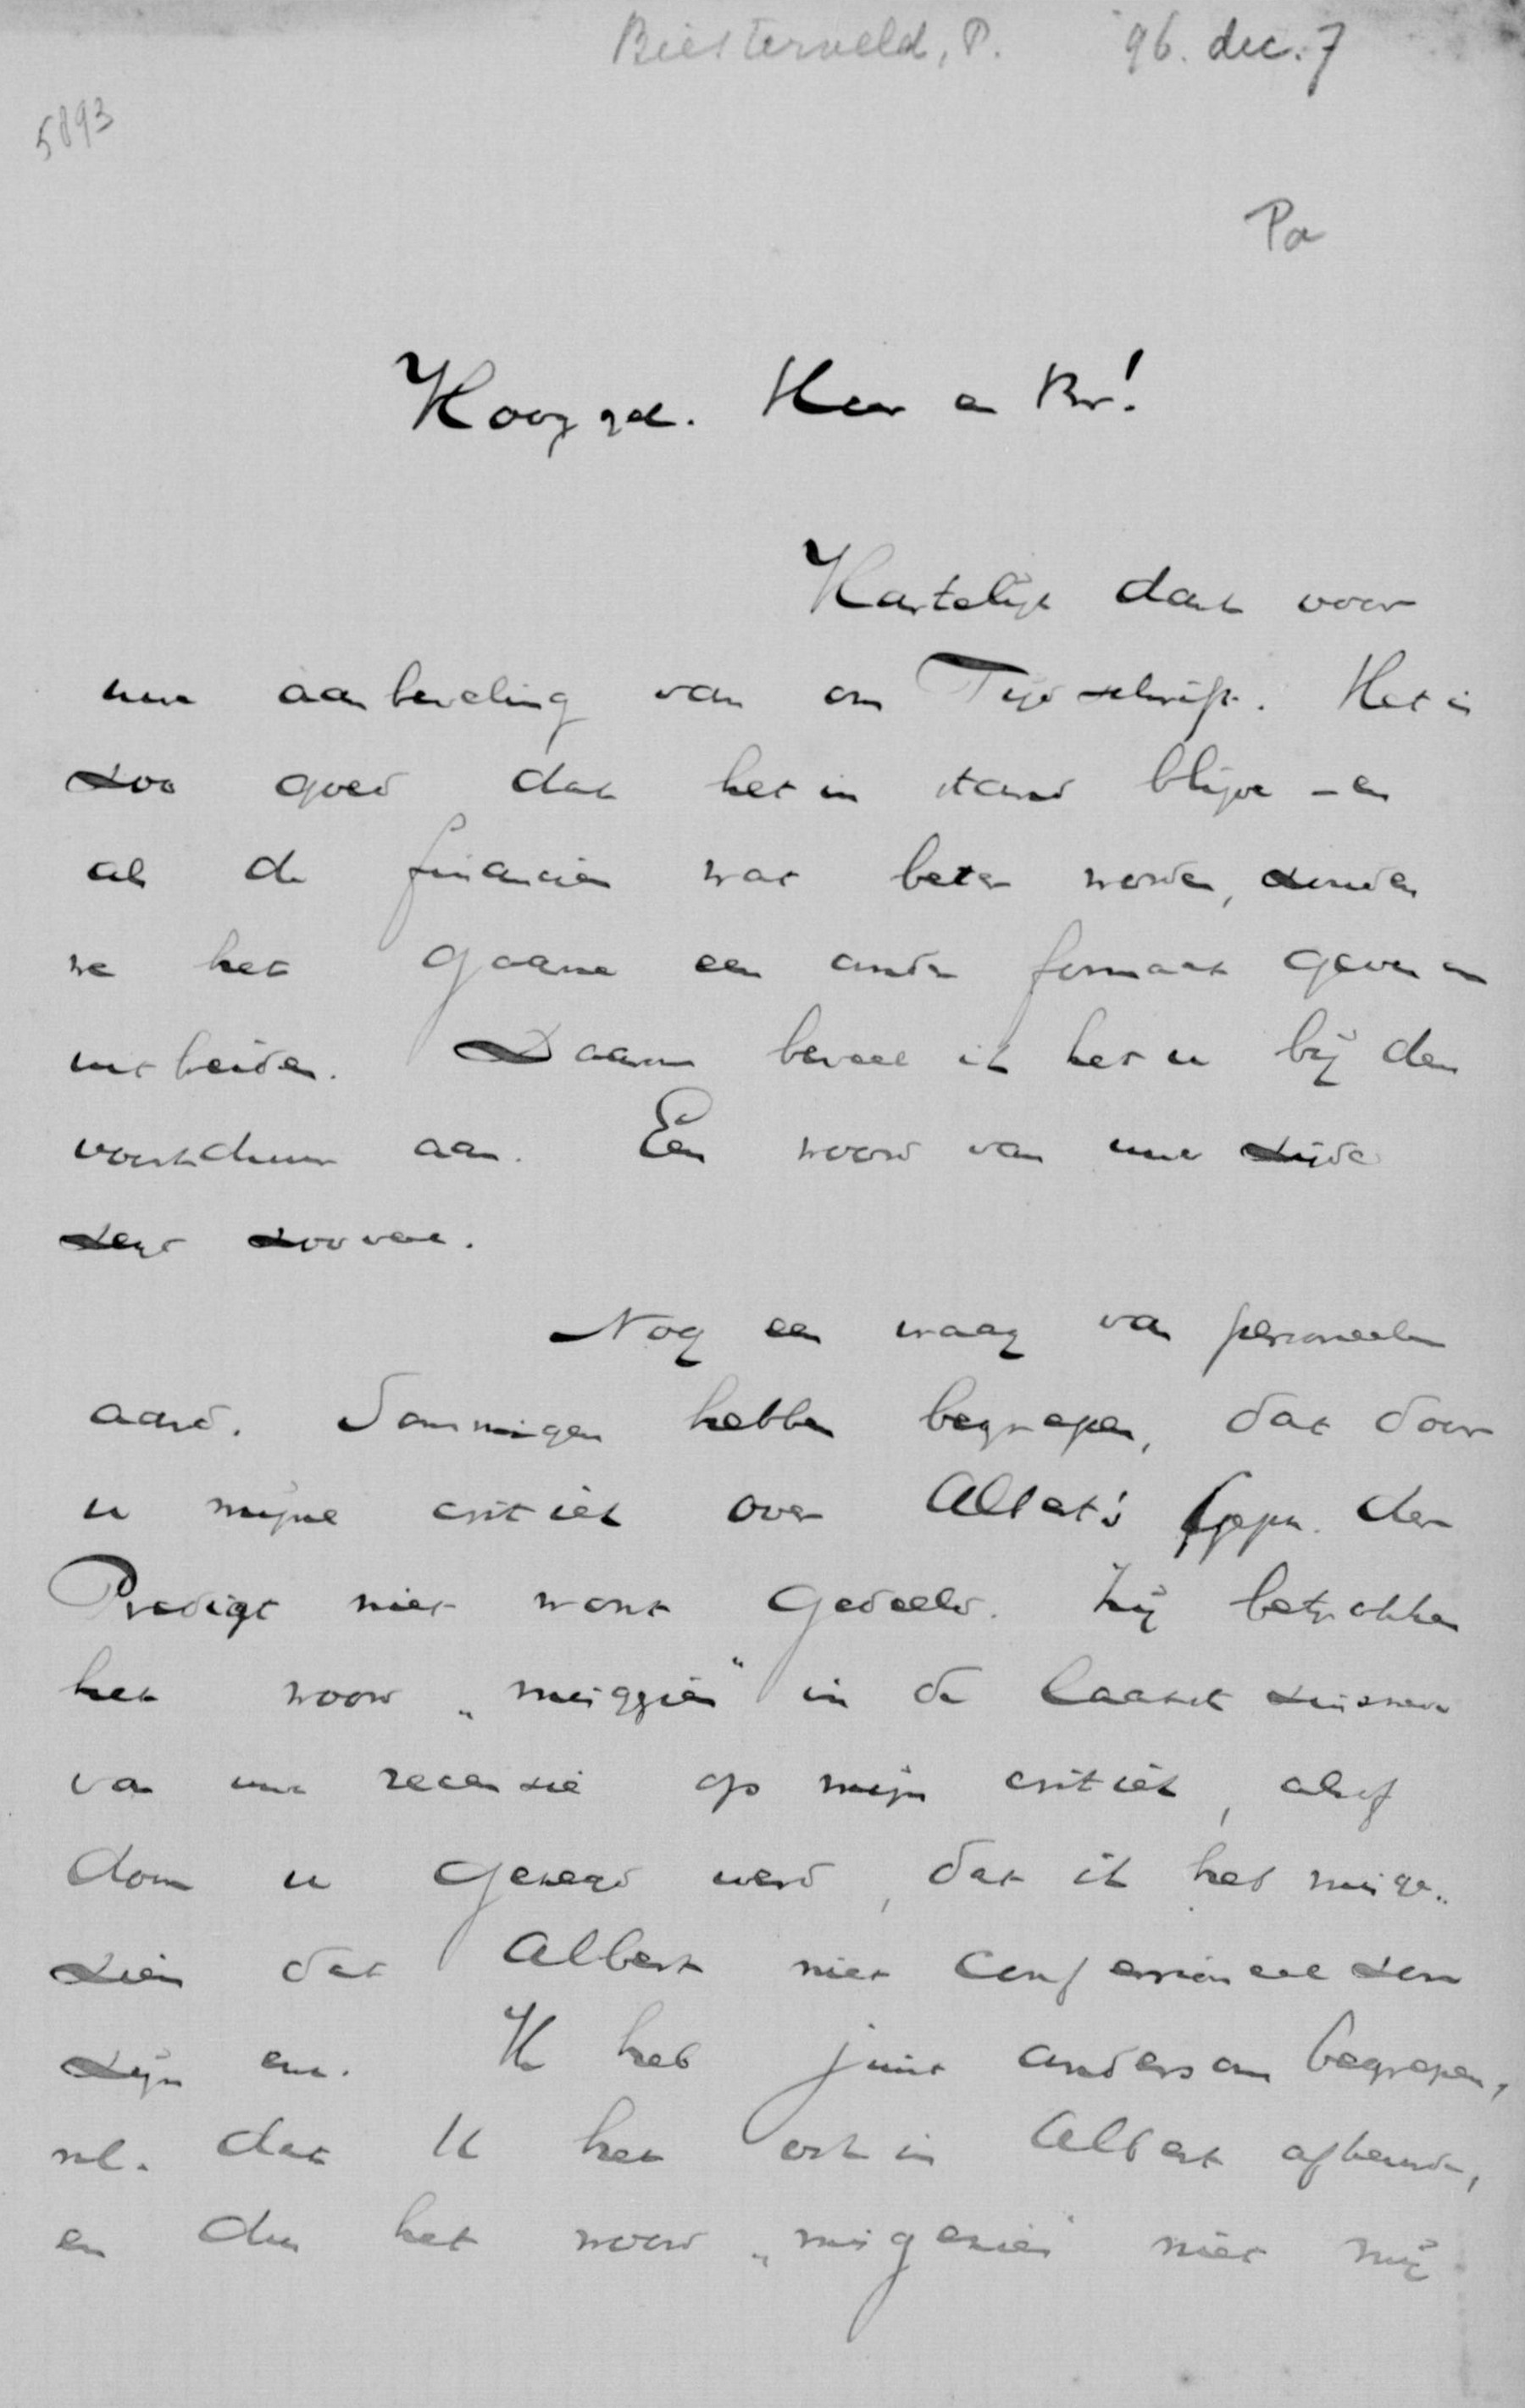 Biesterveld, P. 96. dec. 7
5893
Pa
Hooggel. Heer en Br!
Hartelijk dank voor
uwe aanbeveling van ons Tijdschrift. Het is
zoo goed dat het in stand blijve - en
als de financien wat beter worden, zouden
we het gaarne een ander formaat geven en
uitbreiden. Daarom beveel ik het u bij den
voortduur aan. Een woord van uwe zijde
zegt zooveel.
Nog een vraag van personeelen
aard. Sommigen hebben begrepen, dat door
u mijne critiek over Albert's der
Predigt niet wordt gedeeld. Zij betrokken
het woord „miszien" in de laatste zinsnede
van uwe recensie op mijn critiek, alsof
door u gezegd werd, dat ik het misge-
zien dat Albert niet confessioneel zou
zijn enz. Ik heb juist andersom begrepen,
nl. dat ik het ook in Albert afkeurde,
en dus het woord „misgezien" niet mij